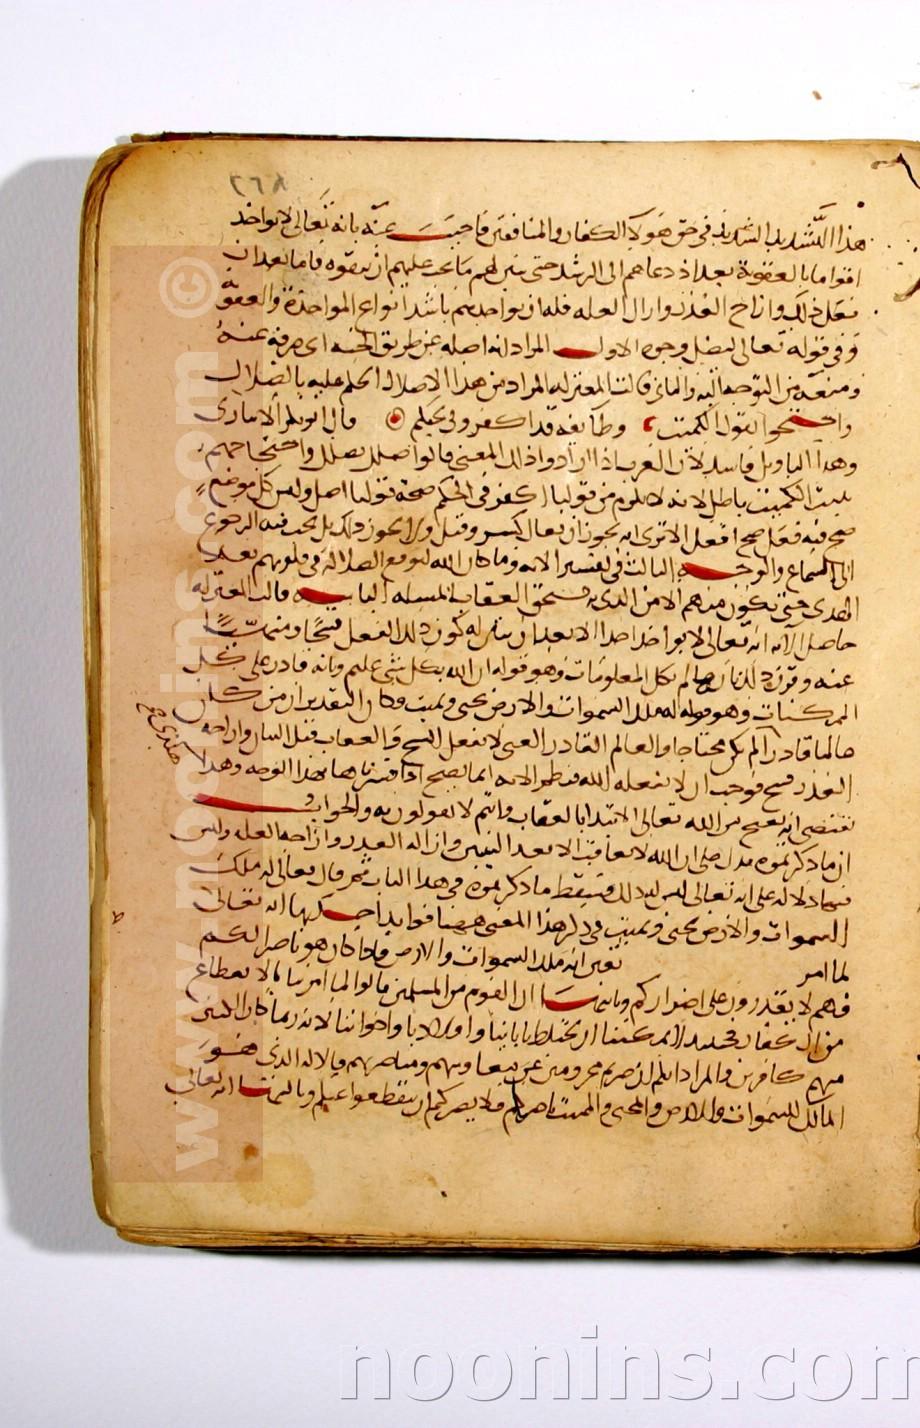 ٢٦٨
هذا التشديد الشديد في حق هولا الكفار والمنافقين فاجيب عنه بانه تعالى لا يواخذ
اقواما بالعقوبة بعد اذ دعاهم الى الرشد حتى يبين لهم ما يجب عليهم ان يتقوه فاما بعد ان
فعل ذلك وازاح العذر وازال العله فله ان يواخذهم باشد انواع المواخذة والعقوبة
وفي قوله تعالى ليضل وجوه الاول المراد انه اضله عن طريق الجنه اى صرفه عنه
ومنعه من التوجه اليه والثانى قالت المعتزله المراد من هذا الاضلال الحكم عليه بالضلال
واحتجوا بقول الكميت وطائفه قد اكفرونى بحبكم قال ابو بكر الانبارى
وهذا التاويل فاسد لان العرب اذا ارادوا ذلك المعنى قالوا ضلل يضلل واحتجاجهم
ببيت الكميت باطل لانه لا يلزم من قولنا اكفر فى الحكم صحة قولنا اضل وليس كل موضع
صح فيه فعل صح افعل الا ترى انه يجوز ان يقال كسر وقتل ولا يجوز ذلك بل يجب فيه الرجوع
الى السماع والوجه الثالث في تفسير الايه وما كان الله ليوقع الضلالة فى قلوبهم بعد
الهدى حتى يكون منهم الامر الذى به يستحق العقاب المسله الثانيه قالت المعتزله
حاصل الايه انه تعالى لا يواخذ احدا الا بعد ان يبين له كون ذلك الفعل قبيحا ومنهيا
عنه وقرر ذلك بانه عالم بكل المعلومات وهو قوله ان الله بكل شى عليم وبانه قادر على كل
الممكنات وهو قوله له ملك السموات والارض يحيى ويميت فكان التقدير ان من كان
عالما قادرا لم يكن محتاجا والعالم القادر الغنى لا يفعل القبيح والعقاب قبل البيان وازاحه
العذر قبيح فوجب ان لا يفعله الله فنظم الايه انما يصح اذا فسرناها بهذا الوجه وهذا
يقتضى انه يقبح من الله تعالى الابتدا بالعقاب وانتم لا تقولون به والجواب
ان ما ذكرتموه يدل على ان الله لا يعاقب الا بعد التبيين وازالة العذر وازاحة العله وليس
فيها دلاله على انه تعالى ليس له ذلك فسقط ما ذكرتموه في هذا الباب ثم قال تعالى له ملك
السموات والارض يحيى ويميت فى ذكر هذا المعنى ههنا فوايد احديها انه تعالى
لما امر
تعين انه له ملك السموات والارض فاذا كان هو ناصرا لكم
فهم لا يقدرون على اضراركم وثانيها ان القوم من المسلمين قالوا لما امرتنا بالانقطاع
من الكفار فحينئذ لا يمكننا ان نختلط بابائنا واولادنا واخواننا لانه ربما كان الكثير
منهم كافرين والمراد انكم ان صرتم محرومين عن معاونتهم ومناصرتهم فالاله الذى هو
المالك للسموات والارض والمحيى والمميت ناصركم فلا يضركم ان ينقطعوا عنكم وثالثها انه تعالى
www.noonins.com ©
noonins.com